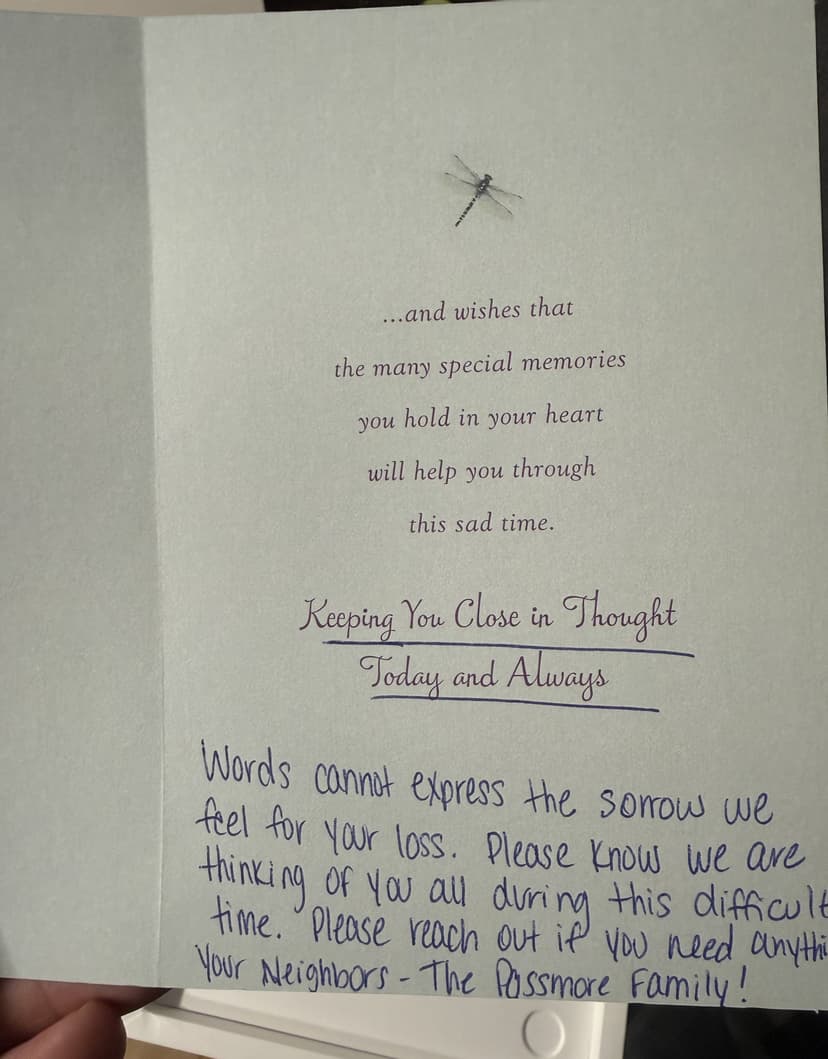 ...and wishes that
the many special memories
you hold in your heart
will help you through
this sad time.
Keeping You Close in Thought
Today and Always
Words cannot express the sorrow we
feel for your loss. Please know we are
thinking of you all during this difficult
time. Please reach out if you need anythi
Your Neighbors - The Passmore Family!